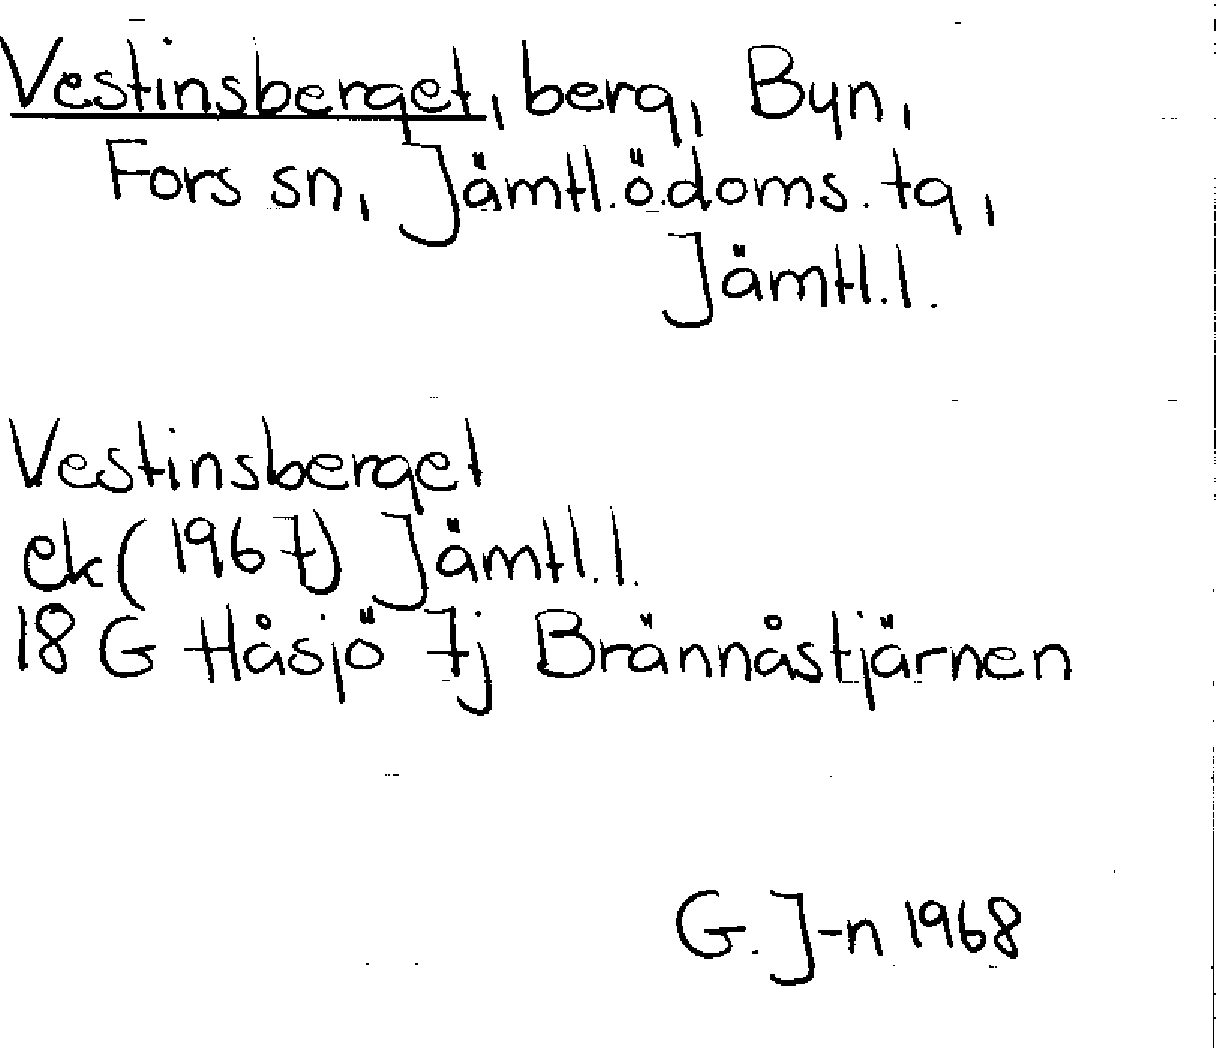 Vestinsberget, berg, Byn,
Fors sn, Jämtl.ö.doms. tg,
Jämtl.l.
Vestinsberget
ek (1967) Jämtl.l.
18 G Håsjö 7j Brännåstjärnen
G. J-n 1968